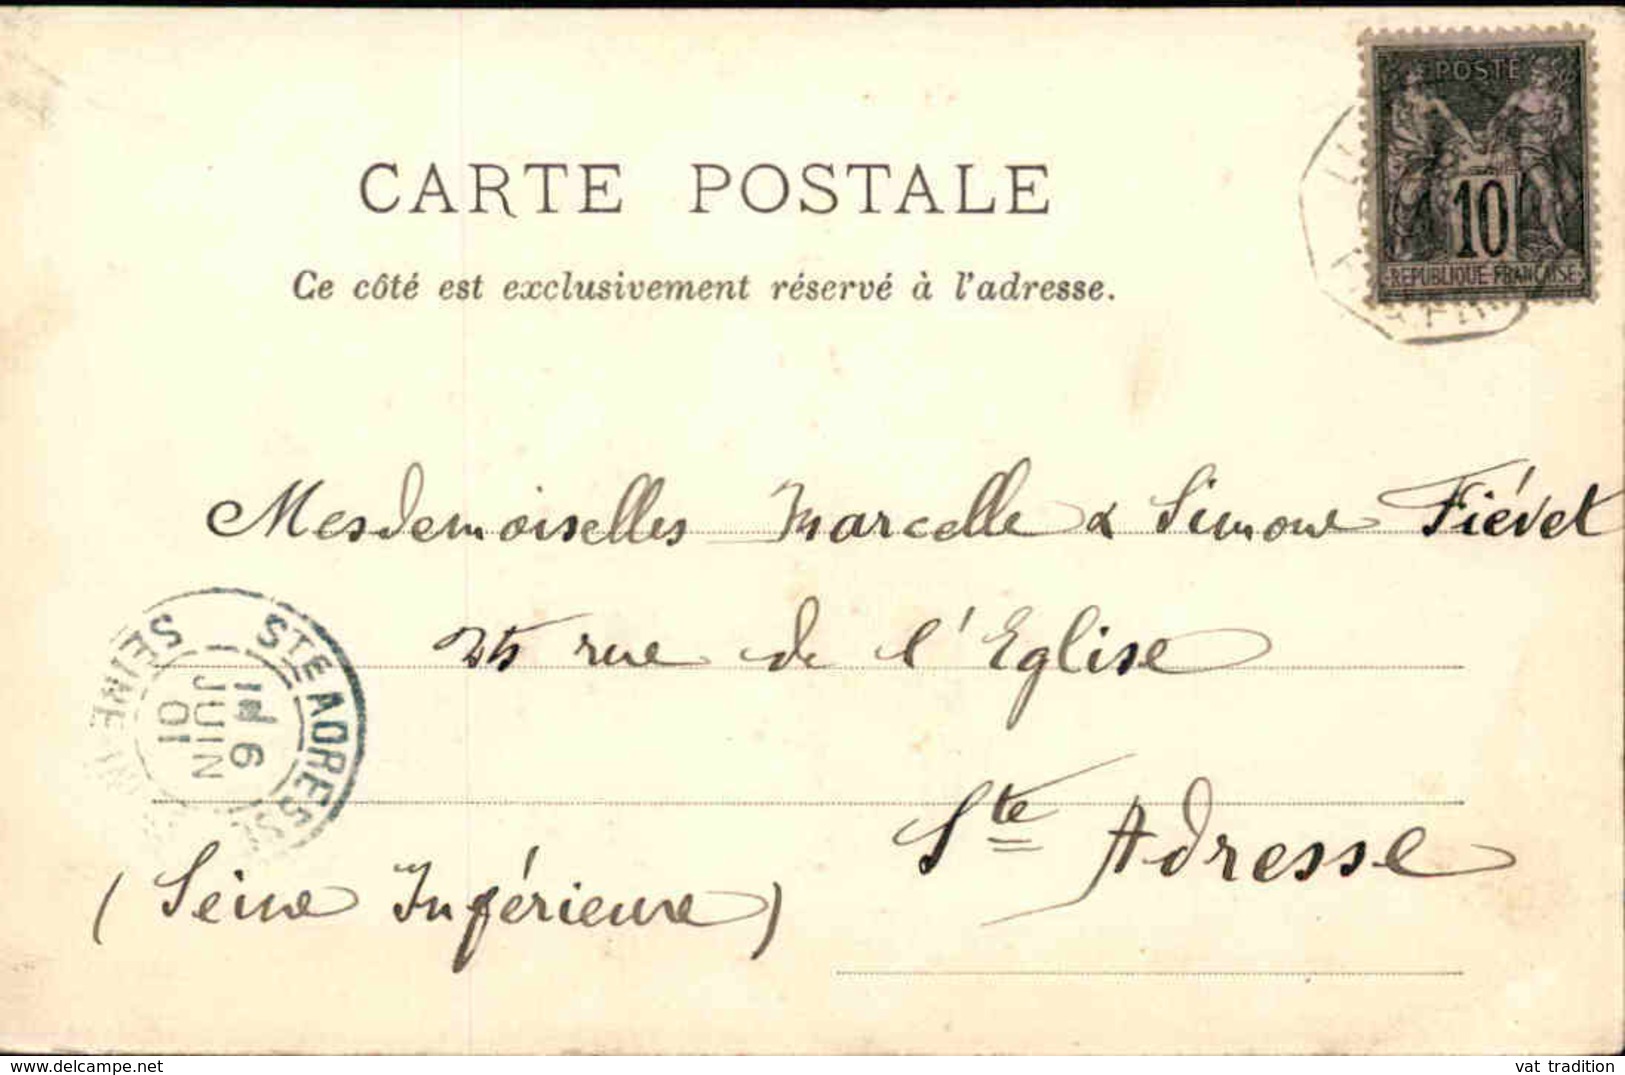 POSTE
10
REPUBLIQUE FRANÇAISE
CARTE POSTALE
Ce côté est exclusivement réservé à l'adresse.
Mesdemoiselles Marcelle & Simone Fiévet
25 rue de l'Eglise
Ste Adresse
(Seine Inférieure)
STE ADRESSE
6
JUIN
01
SEINE
delcampe.net
vat_tradition